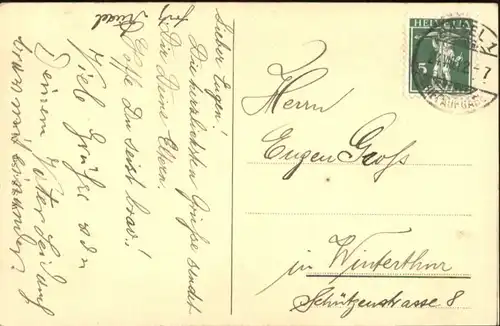 Lieber Eugen!
Die herzlichsten Grüße sendet
Dir Deine Eltern.
Hoffe Du seist brav!
Viele Grüße von
Deinem Vater seid auf
brav mit einander.
Herrn
Eugen Groß
in Winterthur
Schützenstrasse 8
HELVETIA
5